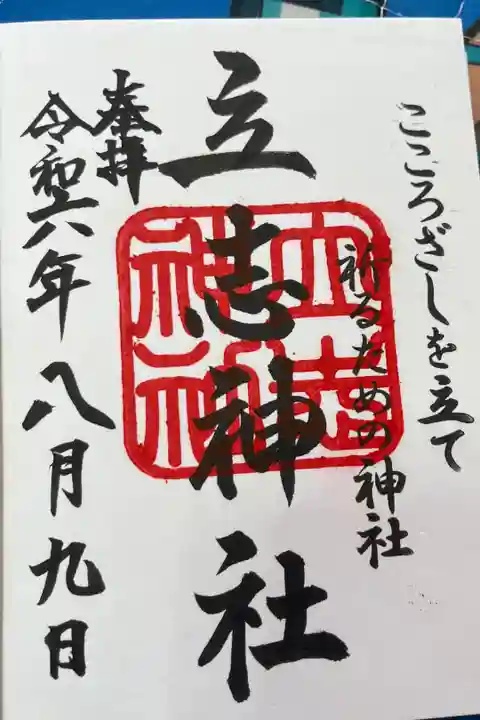 こころざしを立て
祈るための神社
立志神社
立志神社
奉拝
令和六年八月九日